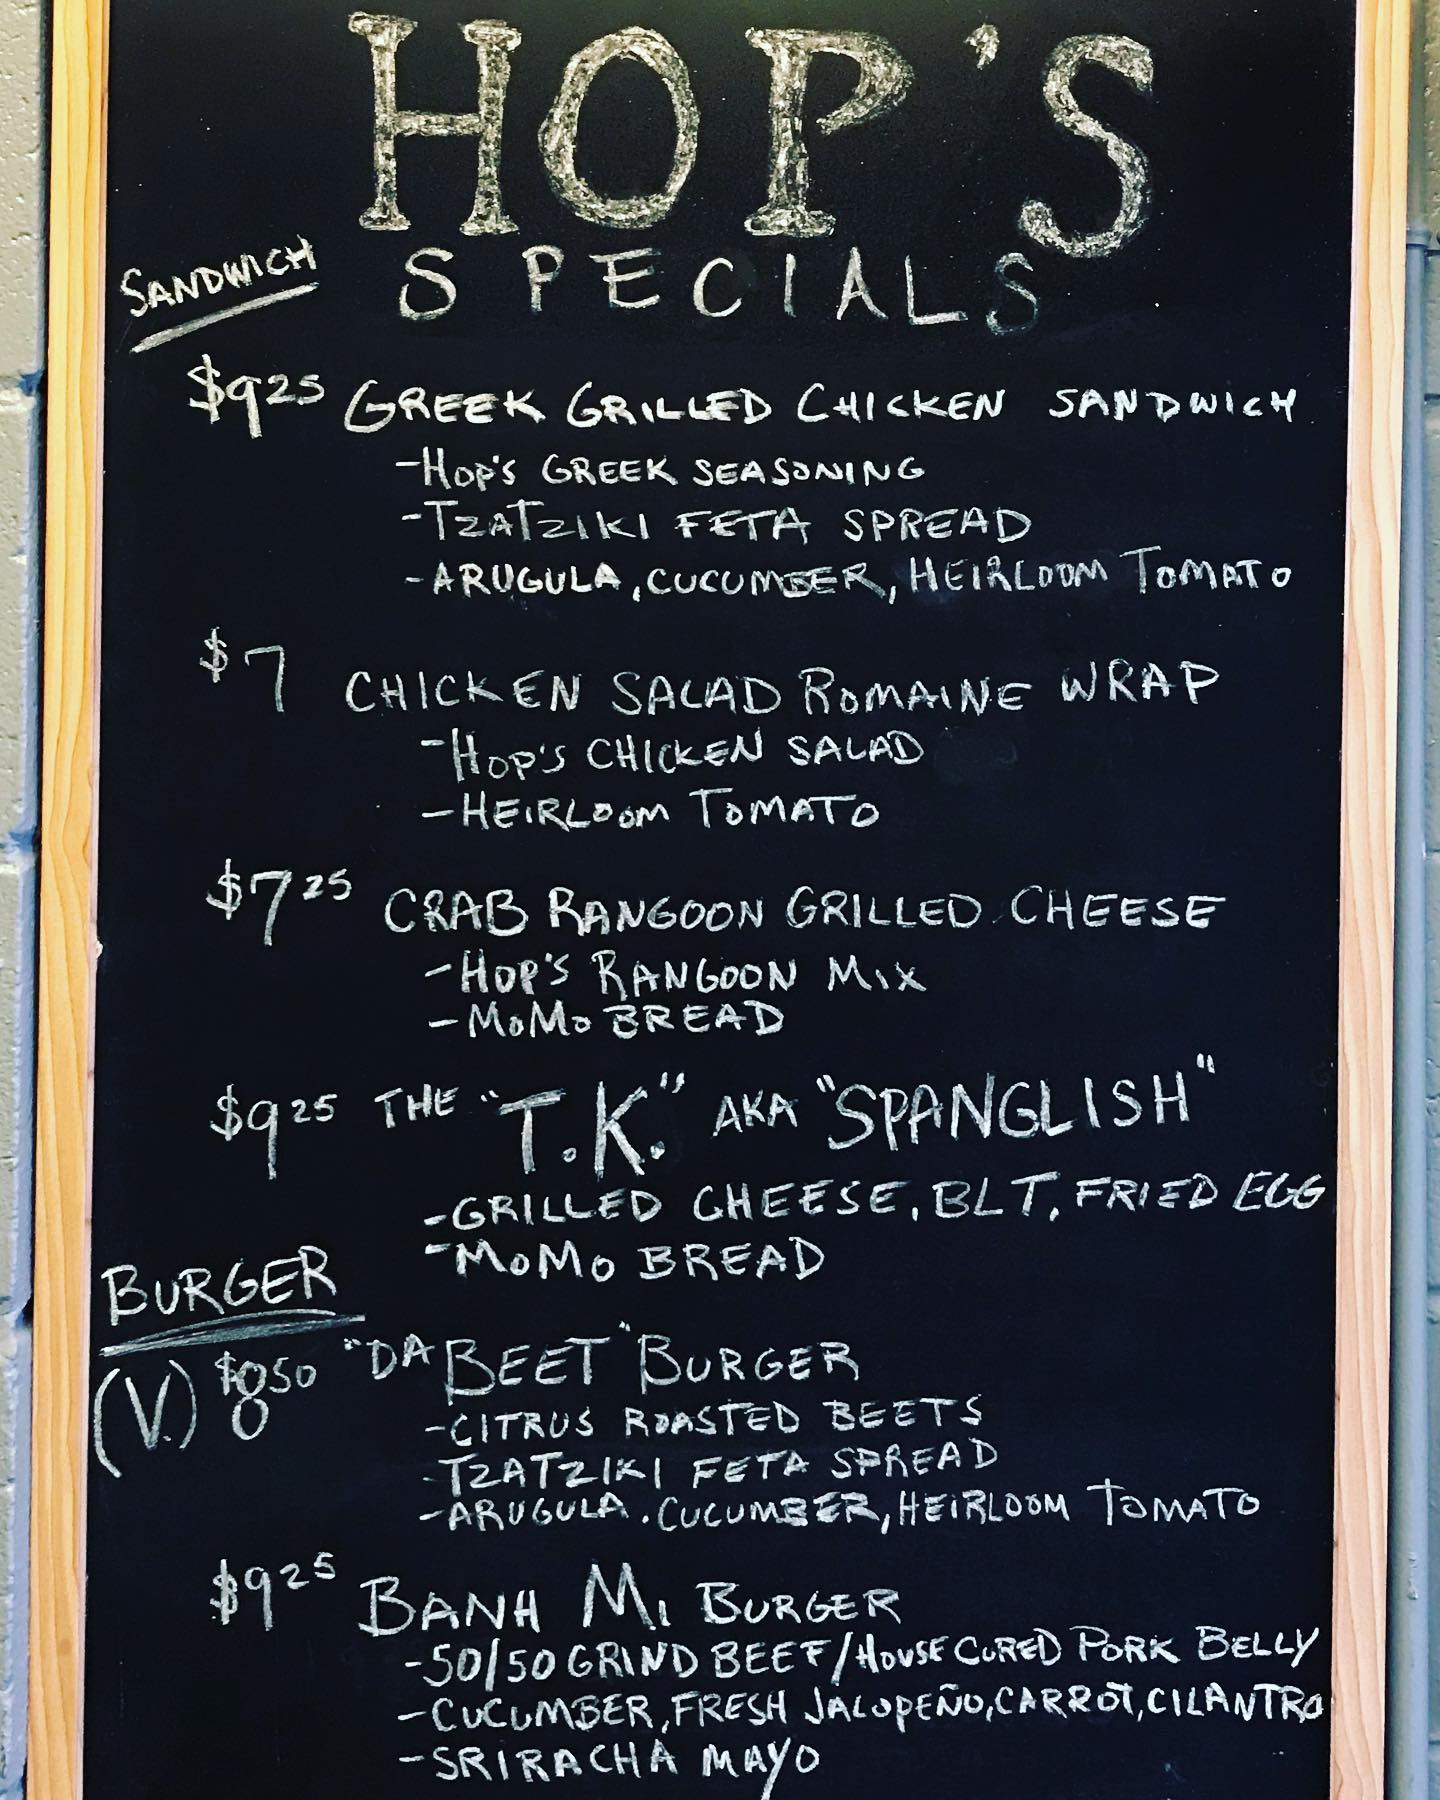 HOP'S
SPECIALS
SANDWICH
$9.25 GREEK GRILLED CHICKEN SANDWICH
-HOP'S GREEK SEASONING
-TZATZIKI FETA SPREAD
-ARUGULA, CUCUMBER, HEIRLOOM TOMATO
$7 CHICKEN SALAD ROMAINE WRAP
-HOP'S CHICKEN SALAD
-HEIRLOOM TOMATO
$7 25 CRAB RANGOON GRILLED CHEESE
-HOP'S RANGOON MIX
-MOMO BREAD
$9 25 THE "T.K." AKA "SPANGLISH"
-GRILLED CHEESE, BLT, FRIED EGG
-MOMO BREAD
BURGER
(V.) $8 50 "DA BEET" BURGER
-CITRUS ROASTED BEETS
-TZATZIKI FETA SPREAD
-ARUGULA, CUCUMBER, HEIRLOOM TOMATO
$9 25 BANH MI BURGER
-50/50 GRIND BEEF/HOUSE CURED PORK BELLY
-CUCUMBER, FRESH JALOPEÑO, CARROT, CILANTRO
-SRIRACHA MAYO